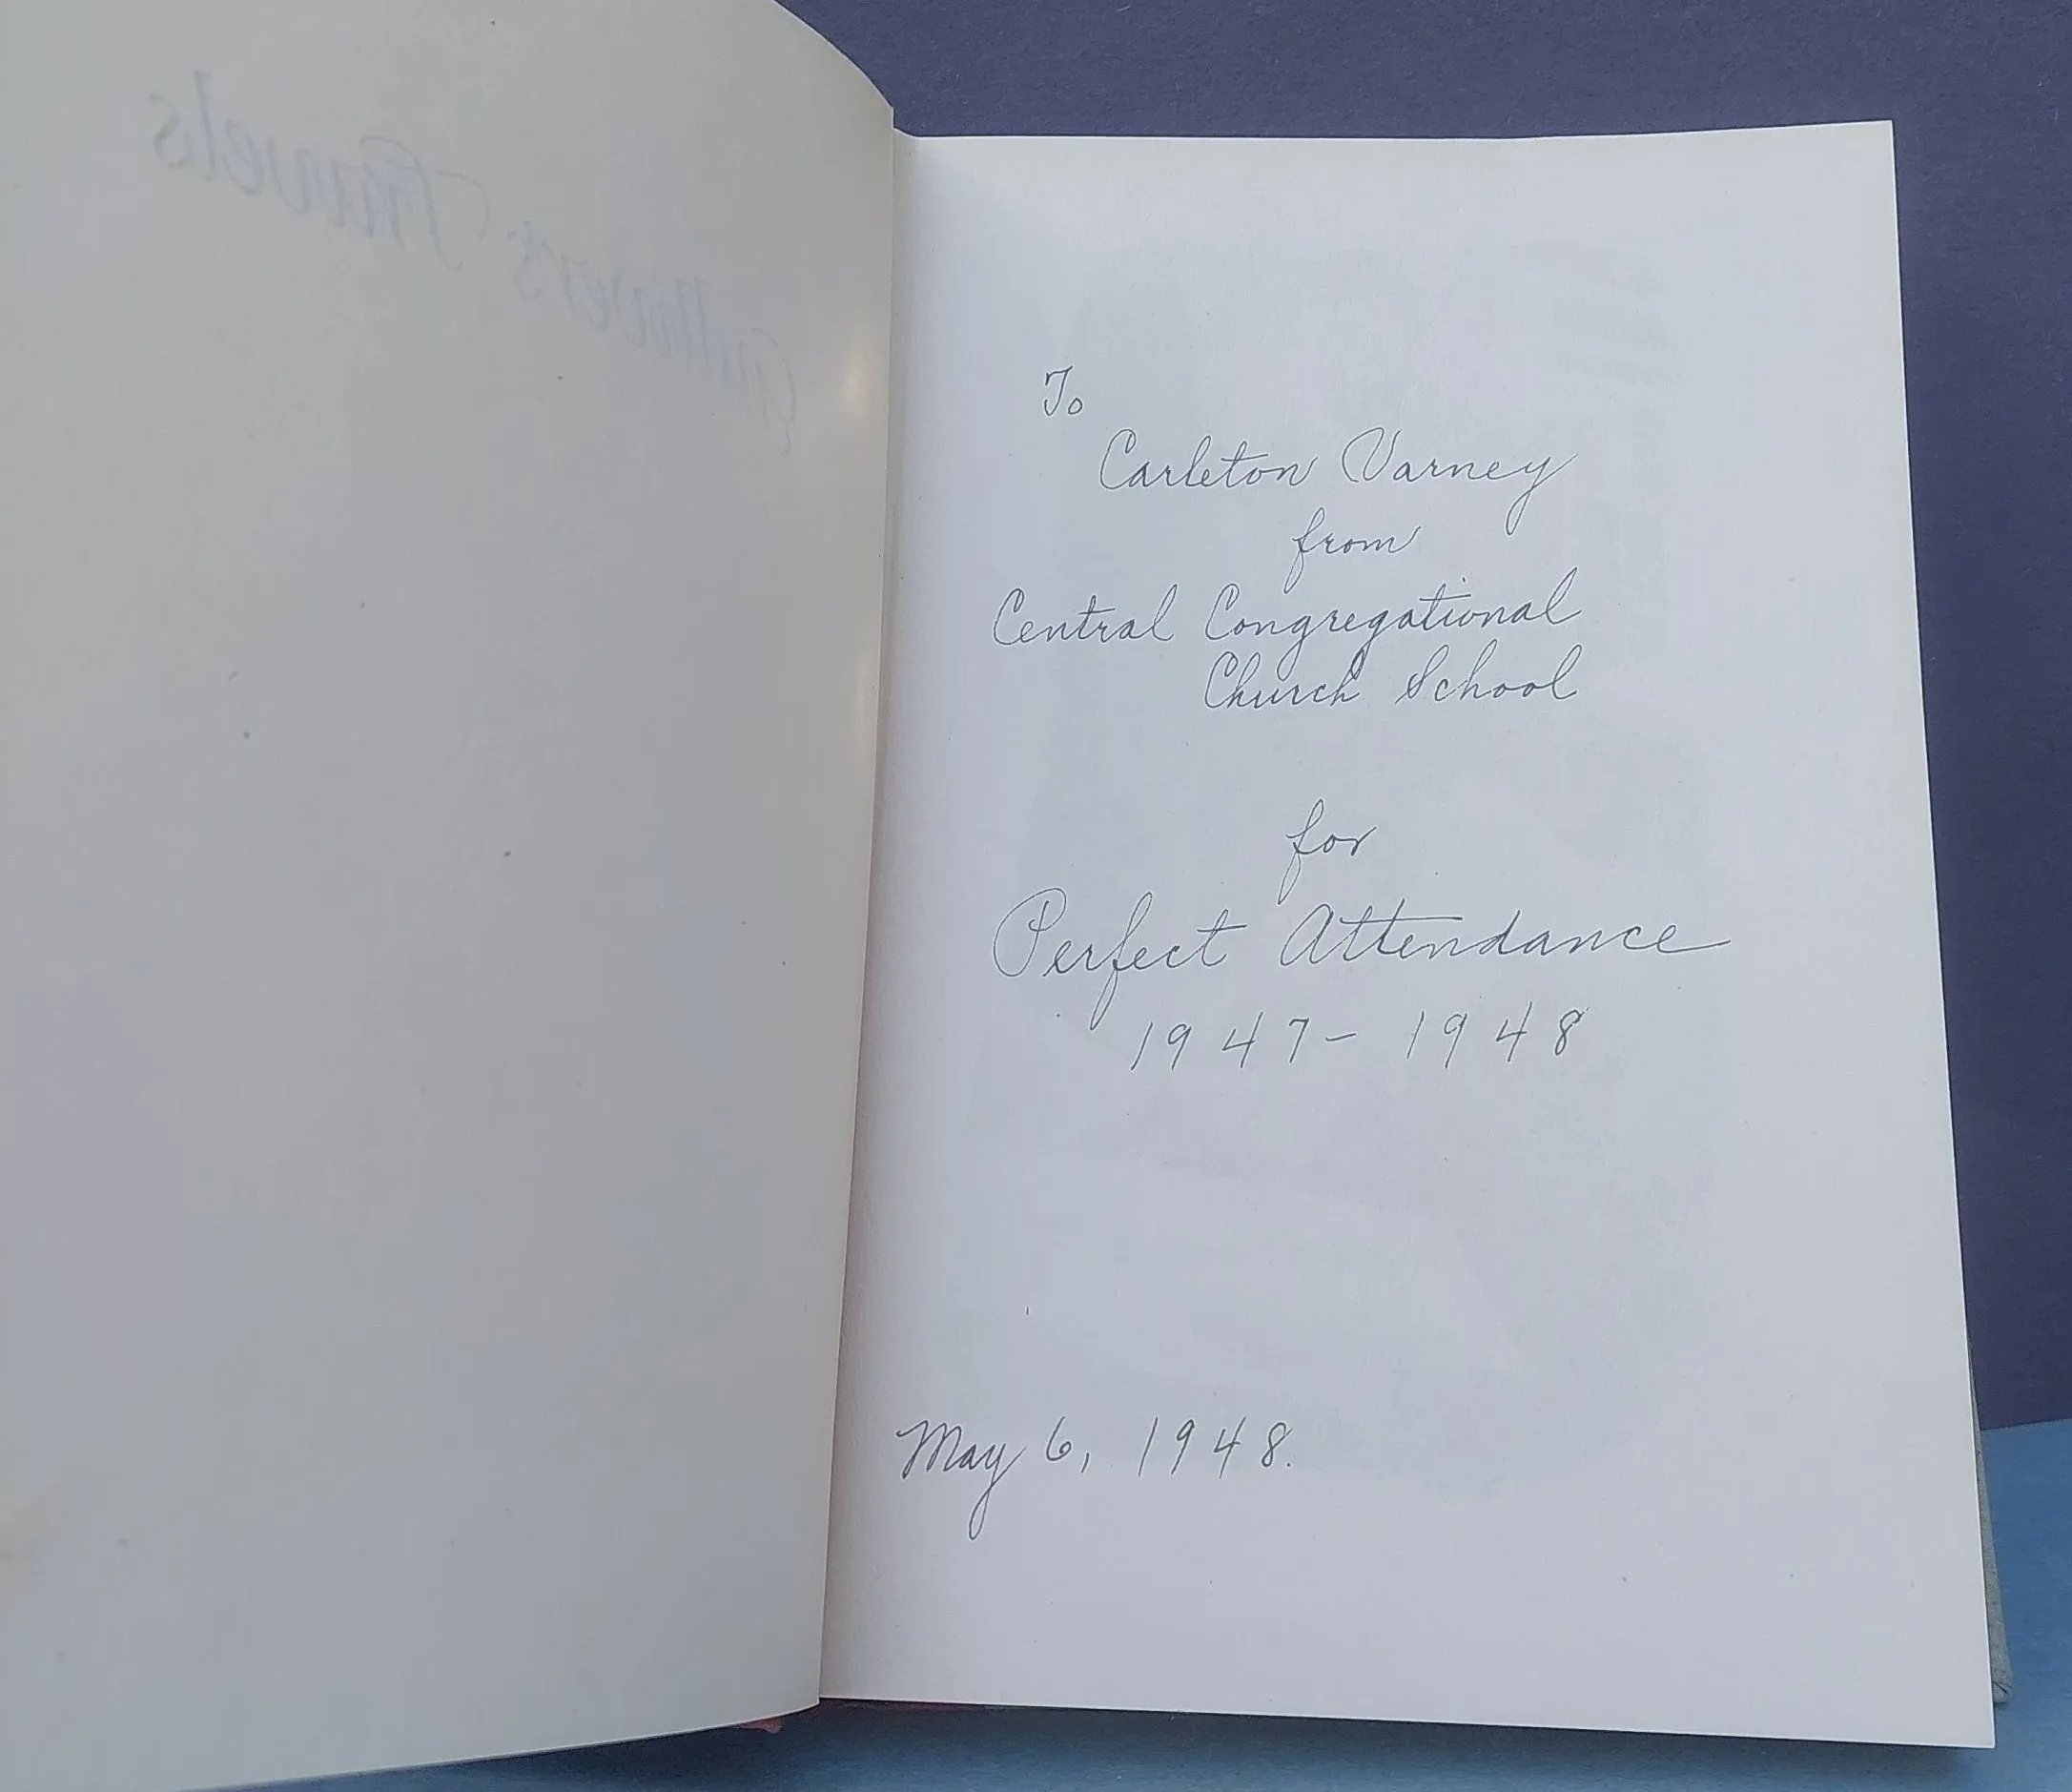 Gulliver's Travels
To
Carleton Varney
from
Central Congregational
Church School
for
Perfect Attendance
1947-1948
May 6, 1948.